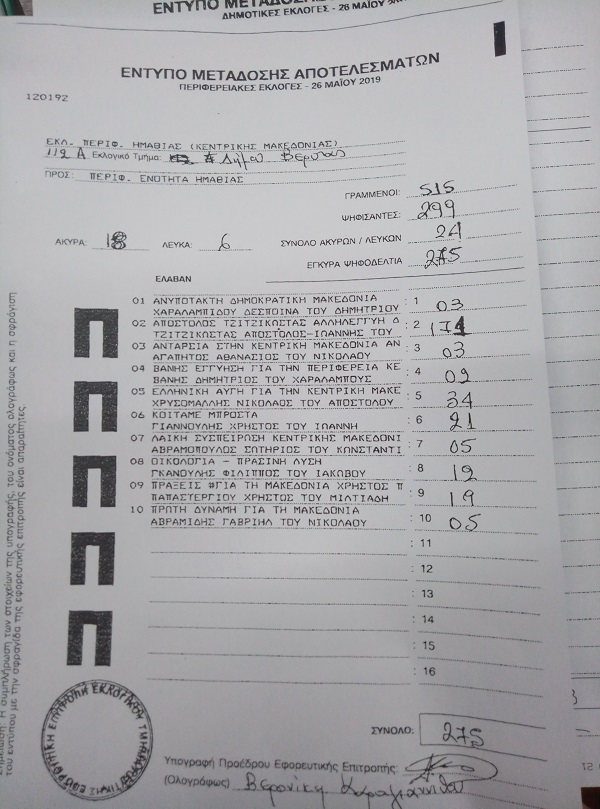 ΕΝΤΥΠΟ ΜΕΤΑΔΟΣΗΣ
ΔΗΜΟΤΙΚΕΣ ΕΚΛΟΓΕΣ - 26 ΜΑΪΟΥ
ΕΝΤΥΠΟ ΜΕΤΑΔΟΣΗΣ ΑΠΟΤΕΛΕΣΜΑΤΩΝ
ΠΕΡΙΦΕΡΕΙΑΚΕΣ ΕΚΛΟΓΕΣ - 26 ΜΑΪΟΥ 2019
120192
ΕΚΛ. ΠΕΡΙΦ. ΗΜΑΘΙΑΣ (ΚΕΝΤΡΙΚΗΣ ΜΑΚΕΔΟΝΙΑΣ)
112 Α Εκλογικό Τμήμα: Δήμου Βέροιας
ΠΡΟΣ: ΠΕΡΙΦ. ΕΝΟΤΗΤΑ ΗΜΑΘΙΑΣ
ΓΡΑΜΜΕΝΟΙ: 515
ΨΗΦΙΣΑΝΤΕΣ: 299
ΑΚΥΡΑ: 18 ΛΕΥΚΑ: 6 ΣΥΝΟΛΟ ΑΚΥΡΩΝ / ΛΕΥΚΩΝ 24
ΕΓΚΥΡΑ ΨΗΦΟΔΕΛΤΙΑ 275
ΕΛΑΒΑΝ
01 ΑΝΥΠΟΤΑΚΤΗ ΔΗΜΟΚΡΑΤΙΚΗ ΜΑΚΕΔΟΝΙΑ : 1 03
ΧΑΡΑΛΑΜΠΙΔΟΥ ΔΕΣΠΟΙΝΑ ΤΟΥ ΔΗΜΗΤΡΙΟΥ
02 ΑΠΟΣΤΟΛΟΣ ΤΖΙΤΖΙΚΩΣΤΑΣ ΑΛΛΗΛΕΓΓΥΗ Δ : 2 174
ΤΖΙΤΖΙΚΩΣΤΑΣ ΑΠΟΣΤΟΛΟΣ-ΙΩΑΝΝΗΣ ΤΟΥ
03 ΑΝΤΑΡΣΙΑ ΣΤΗΝ ΚΕΝΤΡΙΚΗ ΜΑΚΕΔΟΝΙΑ ΑΝ : 3 03
ΑΓΑΠΗΤΟΣ ΑΘΑΝΑΣΙΟΣ ΤΟΥ ΝΙΚΟΛΑΟΥ
04 ΒΑΝΗΣ ΕΓΓΥΗΣΗ ΓΙΑ ΤΗΝ ΠΕΡΙΦΕΡΕΙΑ ΚΕ : 4 02
ΒΑΝΗΣ ΔΗΜΗΤΡΙΟΣ ΤΟΥ ΧΑΡΑΛΑΜΠΟΥΣ
05 ΕΛΛΗΝΙΚΗ ΑΥΓΗ ΓΙΑ ΤΗΝ ΚΕΝΤΡΙΚΗ ΜΑΚΕ : 5 34
ΧΡΥΣΟΜΑΛΛΗΣ ΝΙΚΟΛΑΟΣ ΤΟΥ ΑΠΟΣΤΟΛΟΥ
06 ΚΟΙΤΑΜΕ ΜΠΡΟΣΤΑ : 6 21
ΓΙΑΝΝΟΥΛΗΣ ΧΡΗΣΤΟΣ ΤΟΥ ΙΩΑΝΝΗ
07 ΛΑΙΚΗ ΣΥΣΠΕΙΡΩΣΗ ΚΕΝΤΡΙΚΗΣ ΜΑΚΕΔΟΝΙ : 7 05
ΑΒΡΑΜΟΠΟΥΛΟΣ ΣΩΤΗΡΙΟΣ ΤΟΥ ΚΩΝΣΤΑΝΤΙ
08 ΟΙΚΟΛΟΓΙΑ - ΠΡΑΣΙΝΗ ΛΥΣΗ : 8 12
ΓΚΑΝΟΥΛΗΣ ΦΙΛΙΠΠΟΣ ΤΟΥ ΙΑΚΩΒΟΥ
09 ΠΡΑΞΕΙΣ #ΓΙΑ ΤΗ ΜΑΚΕΔΟΝΙΑ ΧΡΗΣΤΟΣ Π : 9 19
ΠΑΠΑΣΤΕΡΓΙΟΥ ΧΡΗΣΤΟΣ ΤΟΥ ΜΙΛΤΙΑΔΗ
10 ΠΡΩΤΗ ΔΥΝΑΜΗ ΓΙΑ ΤΗ ΜΑΚΕΔΟΝΙΑ : 10 05
ΑΒΡΑΜΙΔΗΣ ΓΑΒΡΙΗΛ ΤΟΥ ΝΙΚΟΛΑΟΥ
: 11
: 12
: 13
: 14
: 15
: 16
ΣΥΝΟΛΟ: 275
Υπογραφή Προέδρου Εφορευτικής Επιτροπής
(Ολογράφως) Βερονίκη
Π
Π
Π
Π
Π
Η συμπλήρωση των στοιχείων της υπογραφής, του ονόματος ολογράφως και η σφράγιση
του εντύπου με την σφραγίδα της εφορευτικής επιτροπής είναι απαραίτητες
ΕΦΟΡΕΥΤΙΚΗ ΕΠΙΤΡΟΠΗ ΕΚΛΟΓΙΚΟΥ ΤΜΗΜΑΤΟΣ